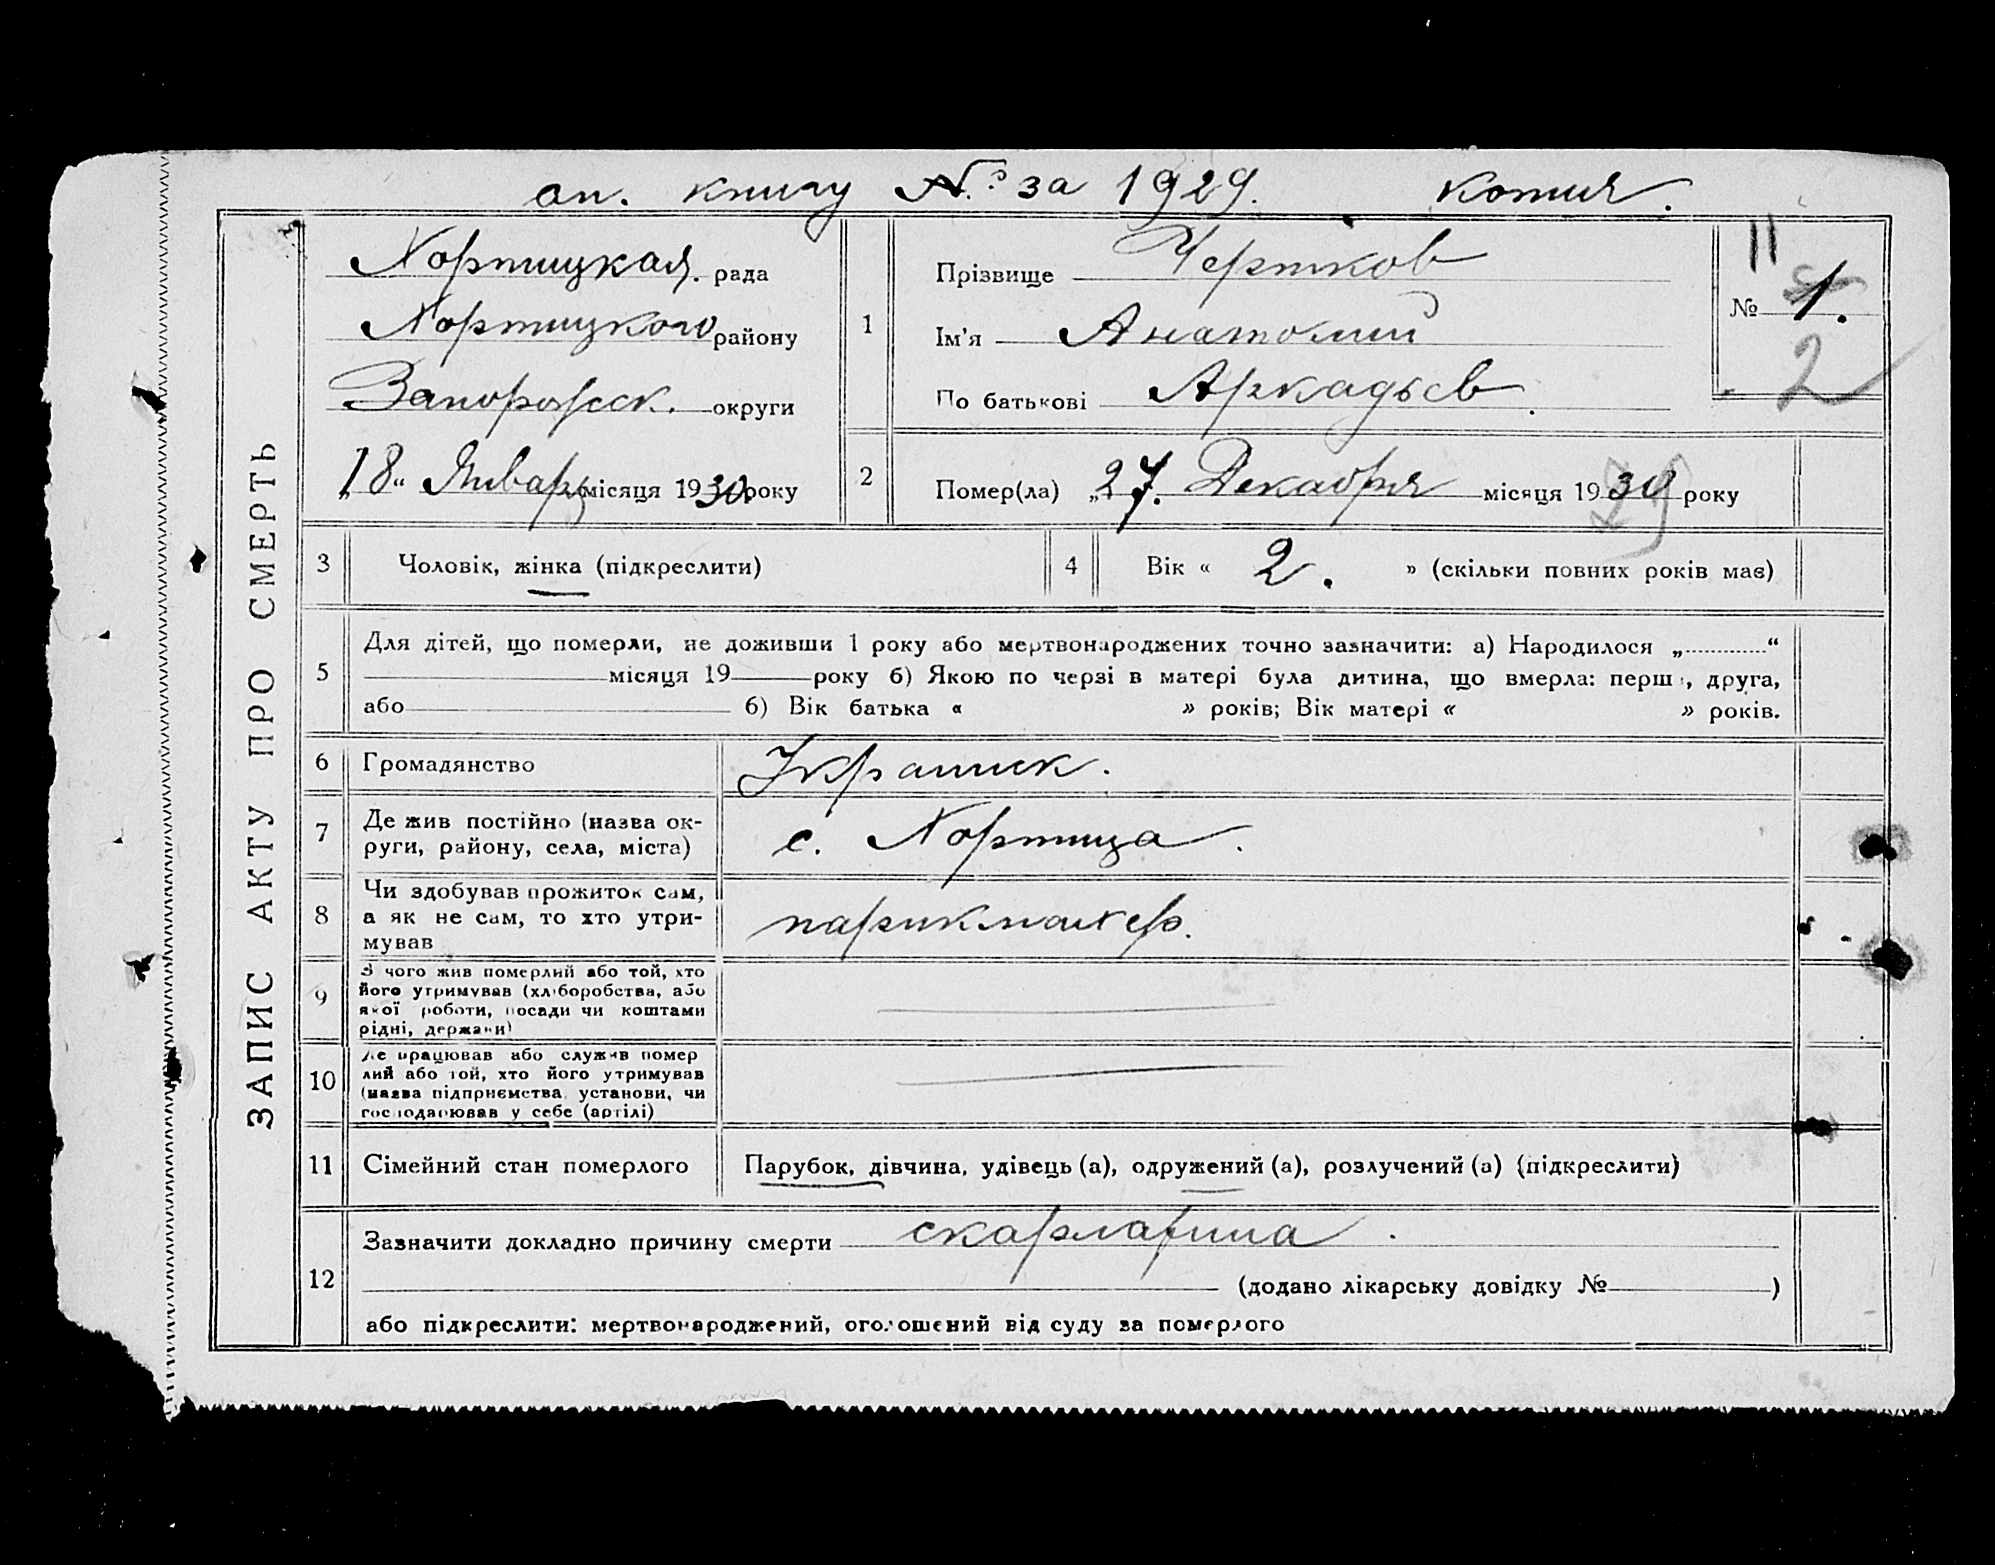 оп. книгу № за 1929. копия.
ЗАПИС АКТУ ПРО СМЕРТЬ
Хортицкая. рада
Хортицкого району
Запорожск. округи
„18“ Январь місяця 1930 року
1
Прізвище Чертков
Ім'я Анатолий
По батькові Аркадьев.
11
№ 1.
2
2
Помер(ла) „27. Декабря місяця 1930 року
29
3
Чоловік, жінка (підкреслити)
4
Вік « 2. » (скільки повних років має)
5
Для дітей, що померли, не доживши 1 року або мертвонароджених точно зазначити: а) Народилося „ “
місяця 19 року б) Якою по черзі в матері була дитина, що вмерла: перша, друга,
або б) Вік батька « » років; Вік матері « » років.
6
Громадянство
Украинск.
7
Де жив постійно (назва ок-
руги, району, села, міста)
с. Хортица.
8
Чи здобував прожиток сам,
а як не сам, то хто утри-
мував
парикмахер.
9
З чого жив померлий або той, хто
його утримував (хліборобства, або
якої роботи, посади чи коштами
рідні, держави)
10
Де працював або служив помер
лий або той, хто його утримував
(назва підприємства, установи, чи
господарював у себе (артілі)
11
Сімейний стан померлого
Парубок, дівчина, удівець (а), одружений (а), розлучений (а) (підкреслити)
12
Зазначити докладно причину смерти скарлатина.
(додано лікарську довідку № )
або підкреслити: мертвонароджений, оголошений від суду за померлого